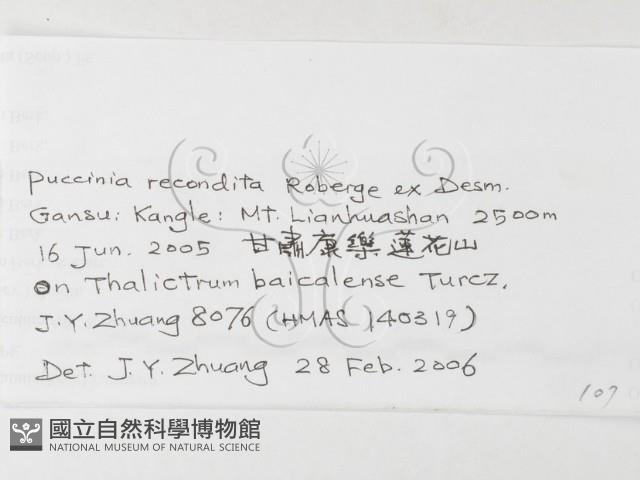 Puccinia recondita Roberge ex Desm.
Gansu: Kangle: Mt. Lianhuashan 2500m
16 Jun. 2005 甘肅康樂蓮花山
On Thalictrum baicalense Turcz.
J.Y. Zhuang 8076 (HMAS 140319)
Det. J.Y. Zhuang 28 Feb. 2006
107
國立自然科學博物館
NATIONAL MUSEUM OF NATURAL SCIENCE